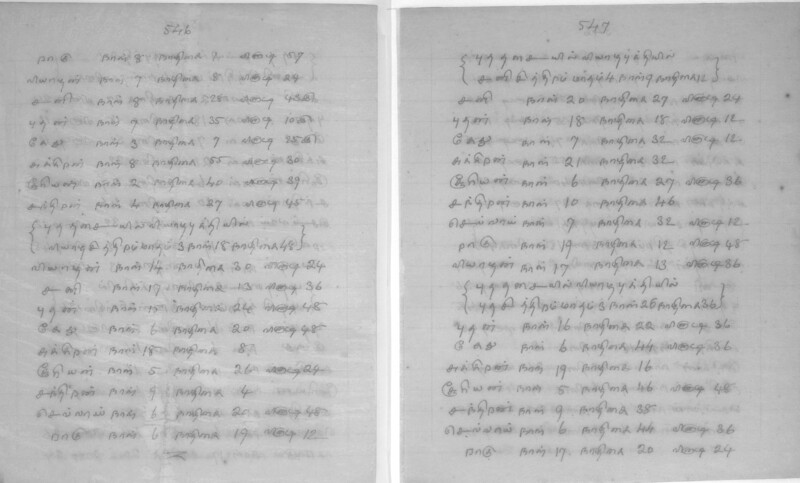 546
ராகு நாள் 8 நாழிகை 1 வினாடி 57
வியாழன் நாள் 7 நாழிகை 8 வினாடி 24
சனி நாள் 8 நாழிகை 28 வினாடி
புதன் நாள் 7 நாழிகை 35 வினாடி
கேது நாள் 3 நாழிகை 7 வினாடி
சுக்கிரன் நாள் 8 நாழிகை 55 வினாடி 30
சூரியன் நாள் 2 நாழிகை 40 வினாடி 39
சந்திரன் நாள் 4 நாழிகை 27 வினாடி 45
புத தசை
3 நாள் 18 நாழிகை 48
வியாழன் நாள் 14 நாழிகை 30 வினாடி 24
சனி நாள் 17 நாழிகை 13 வினாடி 36
புதன் நாள் 15 நாழிகை 24 வினாடி 48
கேது நாள் 6 நாழிகை 20 வினாடி 48
சுக்கிரன் நாள் 18 நாழிகை 8
சூரியன் நாள் 5 நாழிகை 26 வினாடி 24
சந்திரன் நாள் 9 நாழிகை 4
செவ்வாய் நாள் 6 நாழிகை 20 வினாடி 48
ராகு நாள் 6 நாழிகை 19 வினாடி 12
547
புத தசை
4 நாள் 9 நாழிகை 12
சனி நாள் 20 நாழிகை 27 வினாடி 24
புதன் நாள் 18 நாழிகை 18 வினாடி 12
கேது நாள் 7 நாழிகை 32 வினாடி 12
சுக்கிரன் நாள் 21 நாழிகை 32
சூரியன் நாள் 6 நாழிகை 27 வினாடி 36
சந்திரன் நாள் 10 நாழிகை 46
செவ்வாய் நாள் 7 நாழிகை 32 வினாடி 12
ராகு நாள் 19 நாழிகை 12 வினாடி 48
வியாழன் நாள் 17 நாழிகை 13 வினாடி 36
புத தசை
3 நாள் 26 நாழிகை 36
புதன் நாள் 16 நாழிகை 22 வினாடி 36
கேது நாள் 6 நாழிகை 44 வினாடி 36
சுக்கிரன் நாள் 19 நாழிகை 16
சூரியன் நாள் 5 நாழிகை 46 வினாடி 48
சந்திரன் நாள் 9 நாழிகை 38
செவ்வாய் நாள் 6 நாழிகை 44 வினாடி 36
ராகு நாள் 17 நாழிகை 20 வினாடி 24